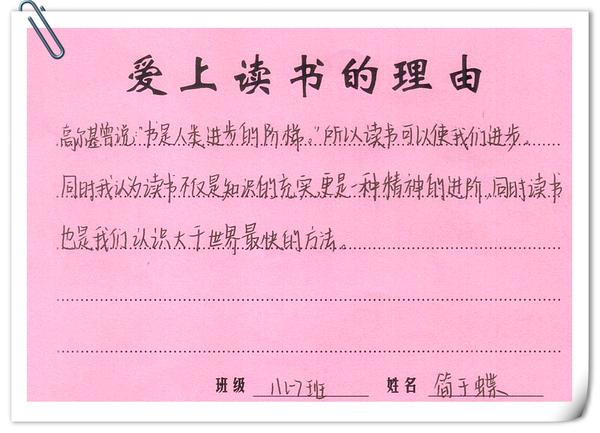 爱上读书的理由
高尔基曾说“书是人类进步的阶梯。”所以读书可以使我们进步。
同时我认为读书不仅是知识的充实,更是一种精神的进阶,同时读书
也是我们认识大千世界最快的方法。
班级 八1-7班 姓名 简于蝶